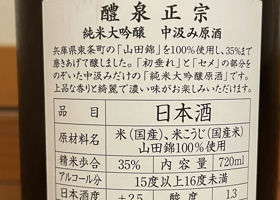 醴泉正宗
純米大吟醸 中汲み原酒
兵庫県東条町の「山田錦」を100%使用し、35%まで
磨きあげて醸しました。「初垂れ」と「セメ」の部分
をのぞいた中汲みだけの「純米大吟醸原酒」です。
上品な香りと綺麗で濃い味がお楽しみいただけます。
品目 日本酒
原材料名 米(国産)、米こうじ(国産米)
山田錦100%使用
精米歩合 35% 内容量 720ml
アルコール分 15度以上16度未満
日本酒度 +2.5 酸度 1.3